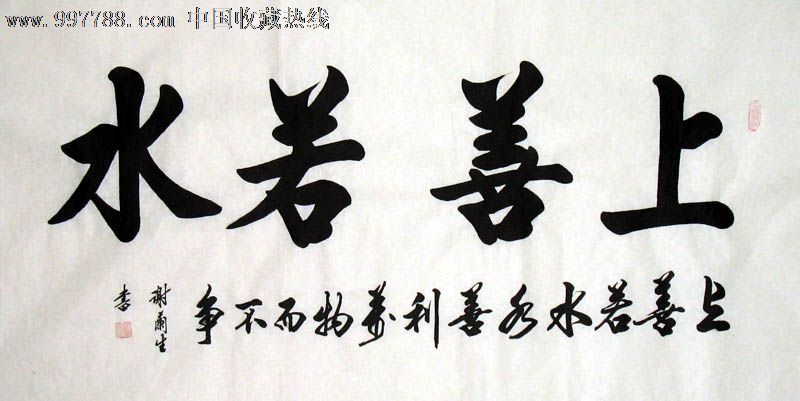 www.997788.com 中国收藏热线
上善若水
上善若水水善利万物而不争
谢尔生
书